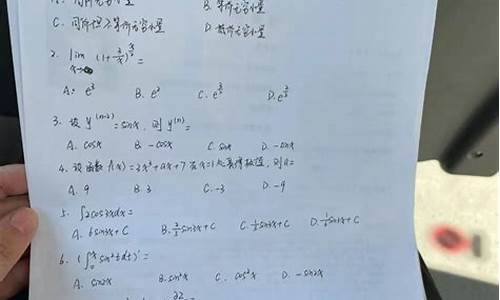 A. 同阶无穷小量 B. 等价无穷小量
C. 同阶但不等价无穷小量 D. 高阶无穷小量
2. lim x→∞ (1+2/x)^ =
A. e³ B. e² C. e D. e
3. 设 y⁽ⁿ⁻²⁾=sinx, 则 y⁽ⁿ⁾=
A. cosx B. -cosx C. sinx D. -sinx
4. 设函数 f(x)=2x²+ax+7在x=1处取得极值, 则a=
A. 9 B. 3 C. -3 D. -9
5. ∫2cos3xdx=
A. 6sin3x+C B. 2/3 sin3x+C C. 1/3 sin3x+C D. 1/6 sin3x+C
6. (∫₀ˣ sin²tdt)'=
A. sin2x B. sin²x C. cos²x D. -sin2x